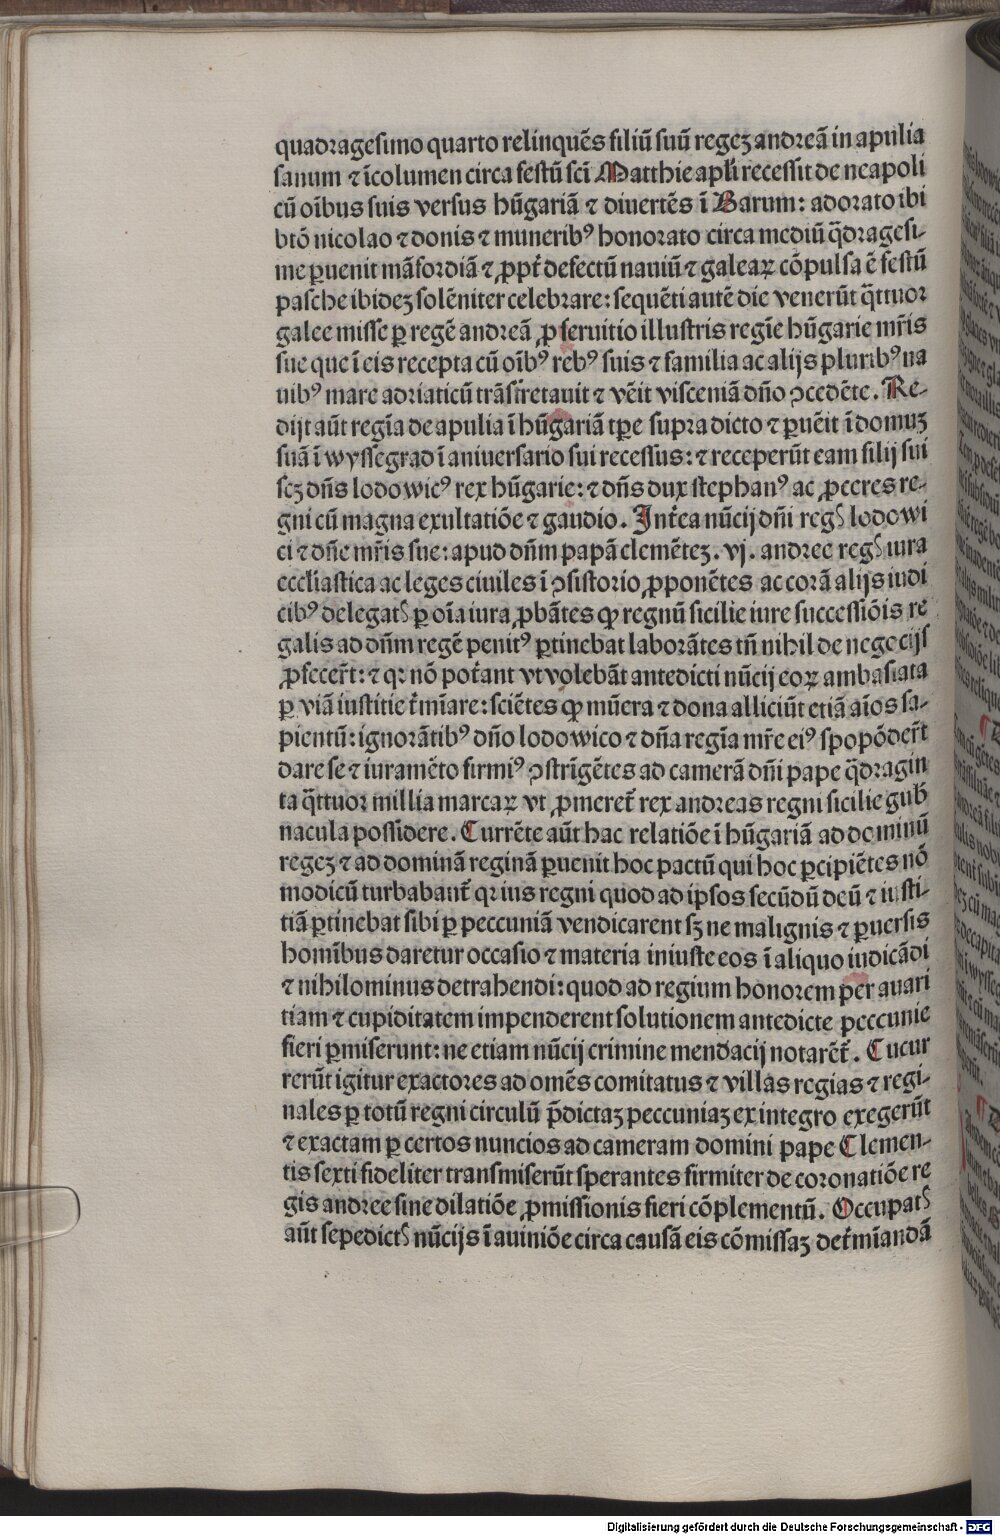 quadragesimo quarto relinquẽs filiũ suũ regeʒ andreã in apulia
sanum ⁊ ĩcolumen circa festũ scĩ Matthie apl̃i recessit de neapoli
cũ oĩbus suis versus hũgariã ⁊ diuertẽs ĩ Barum: adorato ibi
btõ nicolao ⁊ donis ⁊ munerib⁹ honorato circa mediũ q̃dragesi-
me ꝑuenit mãfordiã ⁊ ꝓpt̃ defectũ nauiũ ⁊ galeaꝝ cõpulsa ẽ festũ
pasche ibideʒ solẽniter celebrare: sequẽti autẽ die venerũt q̃ttuor
galee misse ꝑ regẽ andreã ꝓ seruitio illustris regĩe hũgarie mr̃is
sue que ĩ eis recepta cũ oĩb⁹ reb⁹ suis ⁊ familia ac alijs plurib⁹ na
uib⁹ mare adriaticũ trãsfretauit ⁊ vẽit visceniã dño ꝯcedẽte. Re-
dijt aũt regĩa de apulia ĩ hũgariã tꝑe supra dicto ⁊ ꝑuẽit ĩ domuʒ
suã ĩ wyssegrad ĩ aniuersario sui recessus: ⁊ receperũt eam filij sui
scʒ dñs lodowic⁹ rex hũgarie: ⁊ dñs dux stephan⁹ ac ꝓceres re-
gni cũ magna exultatiõe ⁊ gaudio. Int̃ea nũcij dñi regꝭ lodowi
ci ⁊ dñe mr̃is sue: apud dñm papã clemẽteʒ. vj. andree regꝭ iura
ecclĩastica ac leges ciuiles ĩ ꝯsistorio ꝓponẽtes ac corã alijs iudi
cib⁹ delegatꝭ ꝑ oĩa iura ꝓbãtes ꝙ regnũ sicilie iure successiõis re
galis ad dñm regẽ penit⁹ ꝑtinebat laborãtes tñ nihil de negocijs
ꝓfecer̃t: ⁊ qꝛ nõ pot̃ant vt volebãt antedicti nũcij eoꝝ ambasiata
ꝑ viã iustitie t̃mĩare: sciẽtes ꝙ mũera ⁊ dona alliciũt etiã aĩos sa-
pientũ: ignorãtib⁹ dño lodowico ⁊ dña regĩa mr̃e ei⁹ spopõder̃t
dare se ⁊ iuramẽto firmi⁹ ꝯstrĩgẽtes ad camerã dñi pape q̃dragin
ta q̃ttuor millia marcaꝝ vt ꝓmeret̃ rex andreas regni sicilie gub̃
nacula possidere. Currẽte aũt hac relatiõe ĩ hũgariã ad dominũ
regeʒ ⁊ ad dominã reginã ꝑuenit hoc pactũ qui hoc ꝑcipiẽtes nõ
modicũ turbabant̃ qꝛ ius regni quod ad ipsos secũdũ deũ ⁊ iusti-
tiã ꝑtinebat sibi ꝑ peccuniã vendicarent sʒ ne malignis ⁊ ꝑuersis
homĩbus daretur occasio ⁊ materia iniuste eos ĩ aliquo iudicãdi
⁊ nihilominus detrahendi: quod ad regium honorem per auari
tiam ⁊ cupiditatem impenderent solutionem antedicte peccunie
fieri ꝑmiserunt: ne etiam nũcij crimine mendacij notarẽt̃. Cucur
rerũt igitur exactores ad omẽs comitatus ⁊ villas regias ⁊ regi-
nales ꝑ totũ regni circulũ p̃dictaʒ peccuniaʒ ex integro exegerũt
⁊ exactam ꝑ certos nuncios ad cameram domini pape Clemen-
tis sexti fideliter transmiserũt sperantes firmiter de coronatiõe re
gis andree sine dilatiõe ꝓmissionis fieri cõplementũ. Occupatꝭ
aũt sepedictꝭ nũcijs ĩ auiniõe circa causã eis cõmissaʒ det̃mĩandã
Digitalisierung gefördert durch die Deutsche Forschungsgemeinschaft - DFG